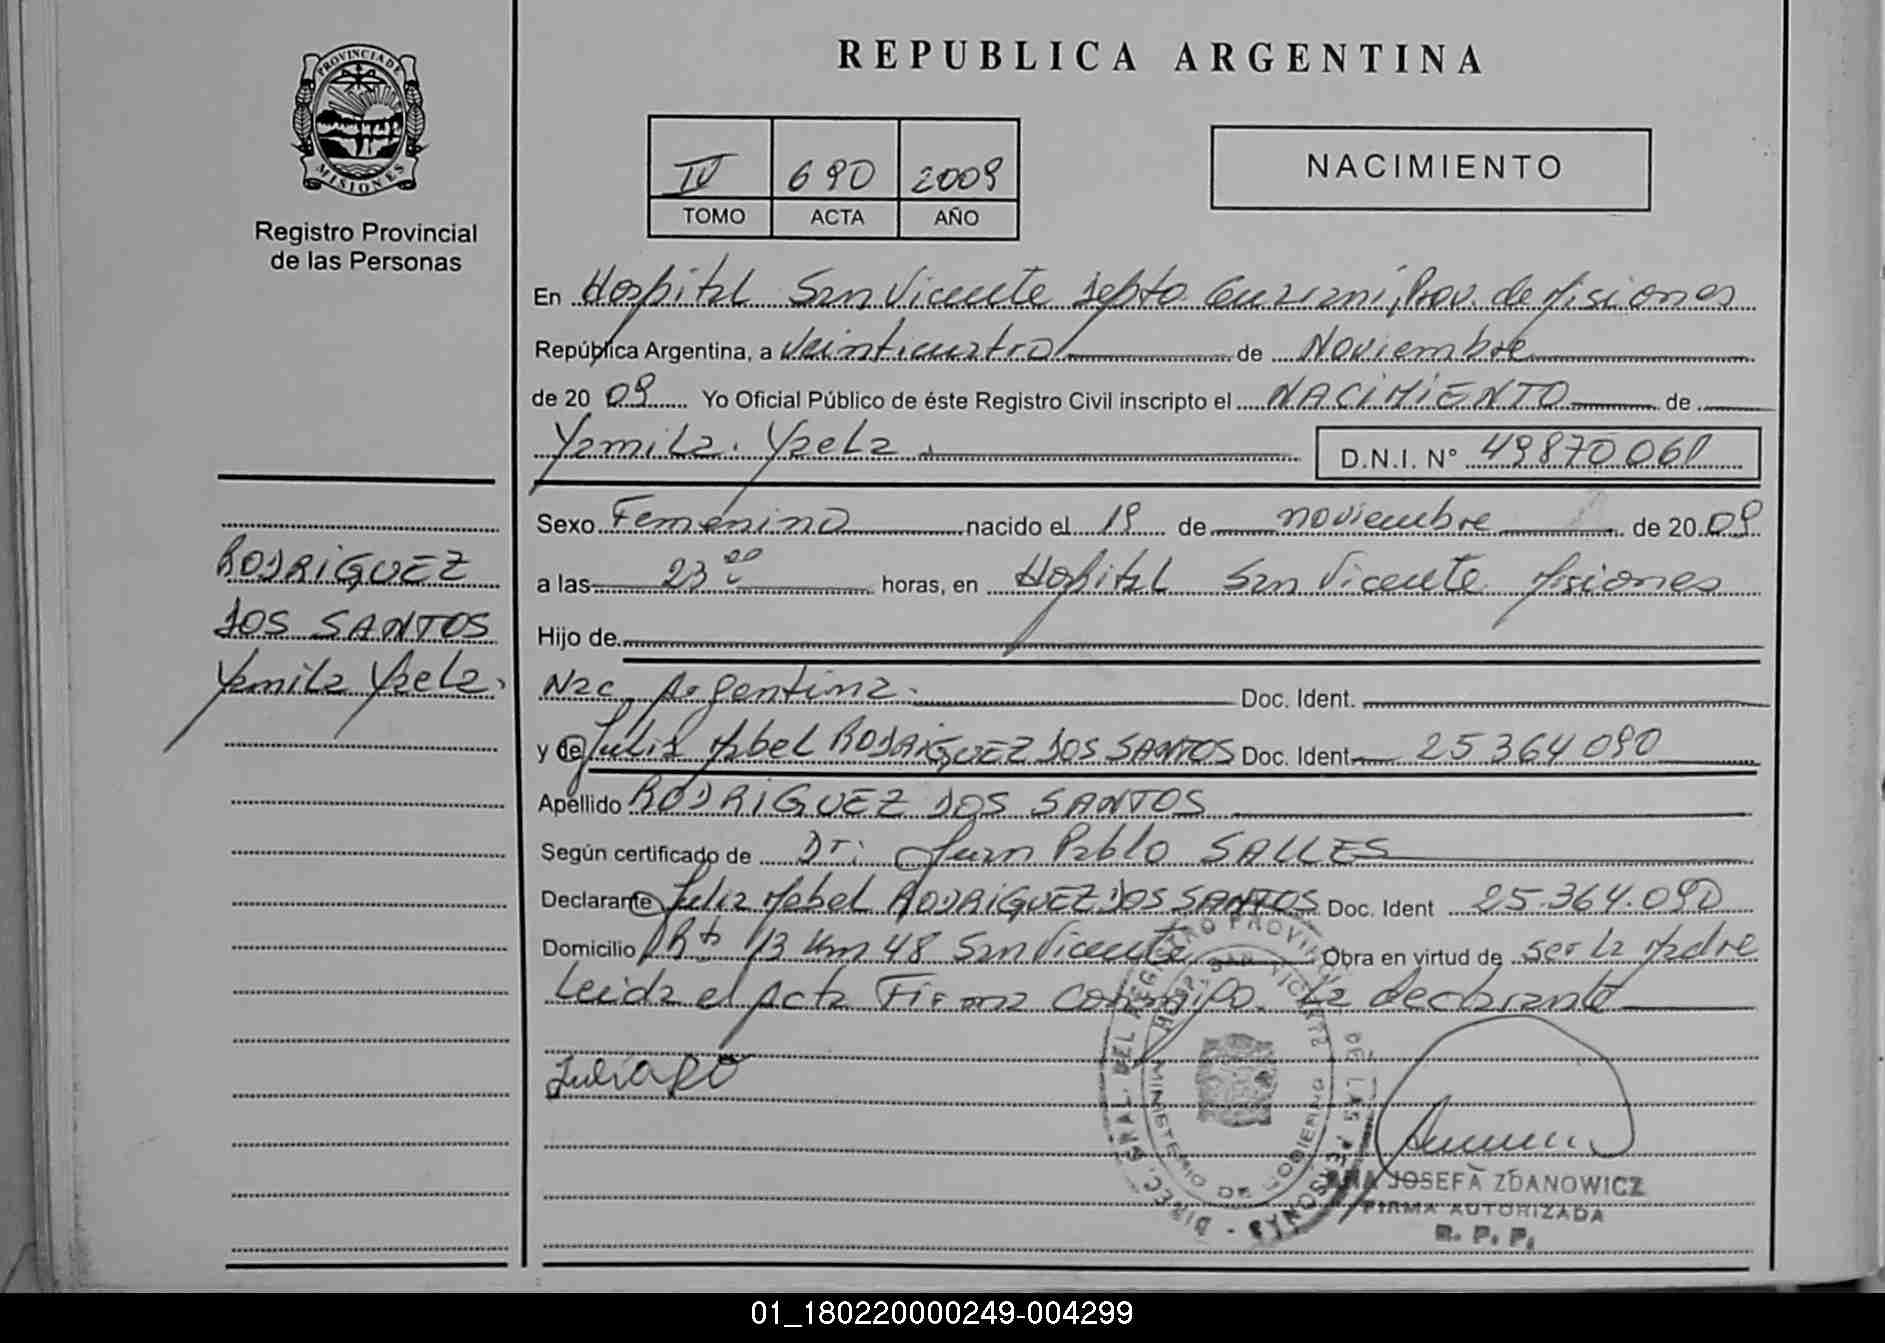 PROVINCIA DE
MISIONES
Registro Provincial
de las Personas
RODRIGUEZ
DOS SANTOS
Yamila Ysela.
REPUBLICA ARGENTINA
IV 690 2009
TOMO ACTA AÑO
NACIMIENTO
En Hospital San Vicente Depto Guarani, Prov. de Misiones
República Argentina, a Veinticuatro de Noviembre
de 20 09 Yo Oficial Público de éste Registro Civil inscripto el NACIMIENTO de
Yamila Ysela
D.N.I. N° 49870061
Sexo Femenino nacido el 19 de noviembre de 20 09
a las 23 horas, en Hospital San Vicente Misiones
Hijo de
Nac Argentina. Doc. Ident.
y de Julia Mabel RODRIGUEZ DOS SANTOS Doc. Ident 25364090
Apellido RODRIGUEZ DOS SANTOS
Según certificado de Dr. Juan Pablo SALLES
Declarante Julia Mabel RODRIGUEZ DOS SANTOS Doc. Ident 25.364.090
Domicilio Rta 13 Km 48 San Vicente Obra en virtud de ser la Madre
Leida el Acta Firma Conmigo La declarante
DIREC. GRAL. DEL REGISTRO PROVINCIAL DE LAS PERSONAS
HOSP. SAN VICENTE
MINISTERIO DE GOBIERNO
JOSEFA ZDANOWICZ
FIRMA AUTORIZADA
R. P. P.
01_180220000249-004299